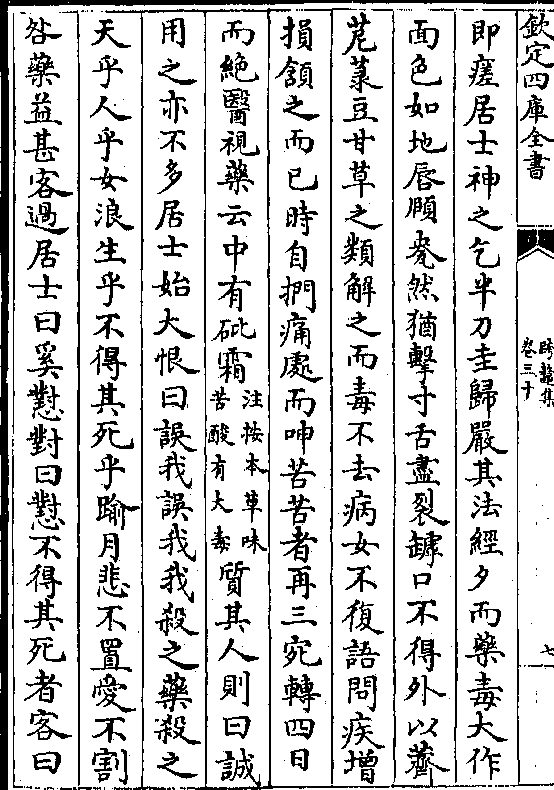 欽定四庫全書
卷三十
七
即瘥居士神之乞半刀圭歸嚴其法經夕而藥毒大作
面色如地唇頤㿱然猶擊寸舌盡裂罅口不得外以薺
苨菉豆甘草之類解之而毒不去病女不復語問疾增
損頷之而已時自捫痛處而呻苦苦者再三宛轉四日
而絶醫視藥云中有砒霜注按本草味苦酸有大毒質其人則曰誠
用之亦不多居士始大恨曰誤我誤我我殺之藥殺之
天乎人乎女浪生乎不得其死乎踰月悲不置愛不割
咎藥益甚客過居士曰奚懟對曰懟不得其死者客曰